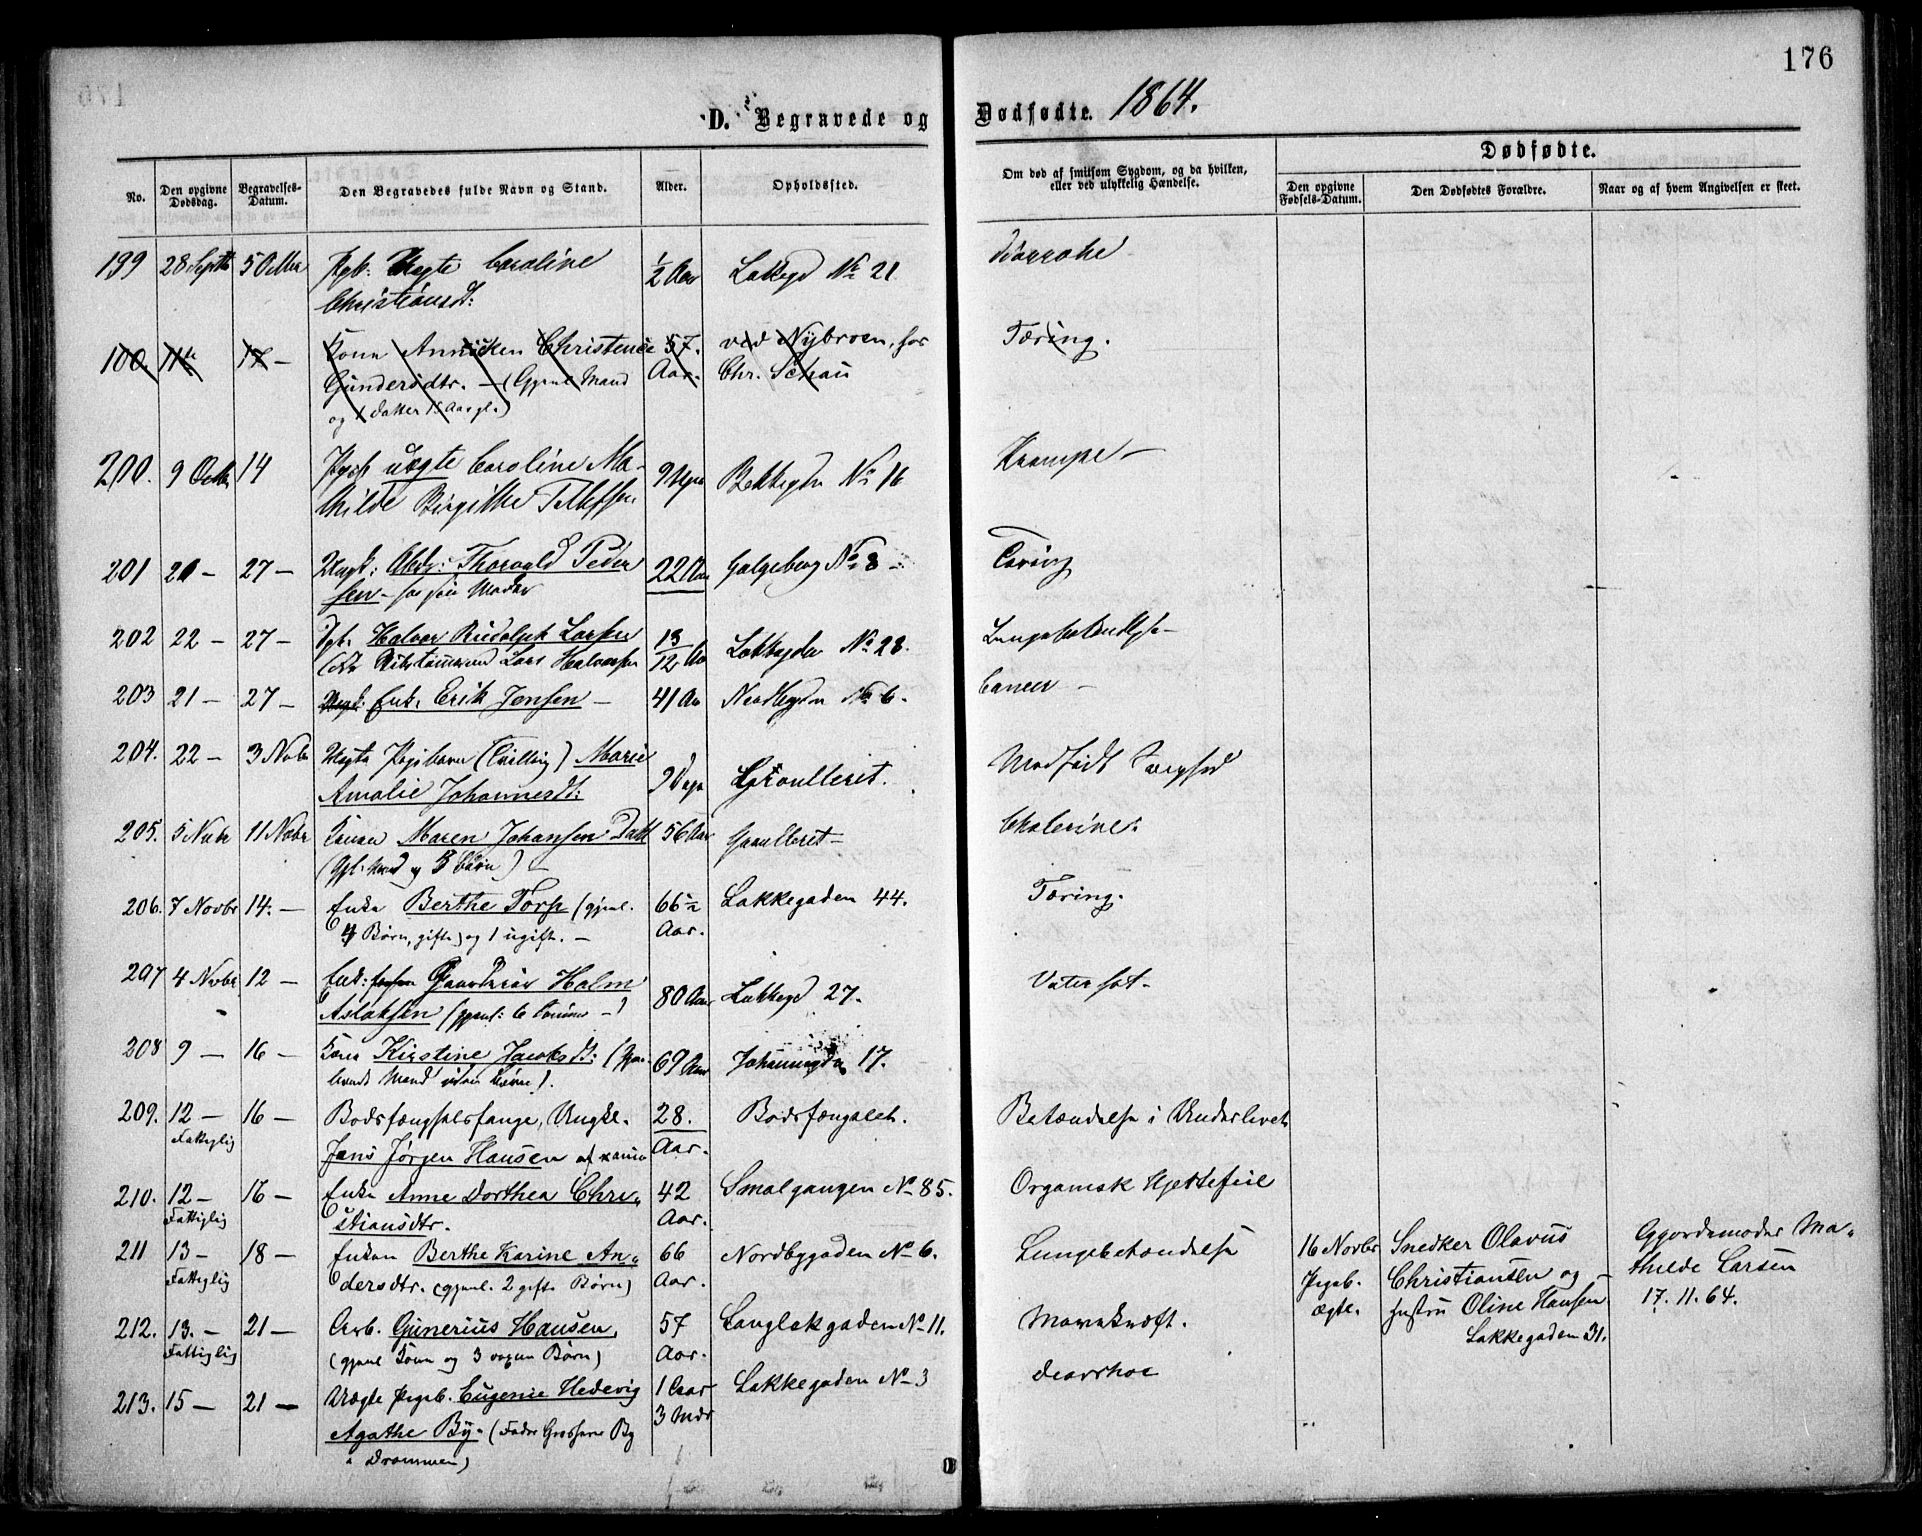 176
D. Begravede og Dødfødte. 1864.
Dødfødte.
No.
Den opgivne Dødsdag.
Begravelses-Datum.
Den Begravedes fulde Navn og Stand.
Alder.
Opholdssted.
Om død af smitsom Sygdom, og da hvilken, eller ved ulykkelig Hændelse.
Den opgivne Fødsels-Datum.
Den Dødfødtes Forældre.
Naar og af hvem Angivelsen er skeet.
199 28 Septb 5 Octbr Pgb. Uægte Caroline ½ Aar Lakkegd No 21 Diarrohe
Christiansdt:
100. 11te 17 - Kona Annicken Christence 57. ved Nybroen, hos Tæring.
Gundersdtr. - (Gjenl Mand Aar. Chr. Schau
og 1 Datter 15 Aar gl.)
200. 9 Octbr 14 Pgb uægte Caroline Ma- Bekkegdn No 16 Krampe -
thilde Birgitte
201 21 - 27 - Ungk: Arbdr: Thorvald Peder 22 Aar Galgeberg No 8 - Tæring
sen - hos sin Moder
202 22 - 27 - Pgb. Halvor Rudolph Larsen 13/12 Aar Lakkegden No 28. Lungebetændelse -
Lars Halvorsen
203 21 - 27 - Enk. Erik Jensen - 41 Aar Nordbygdn No 6. Cancer -
204. 22 - 3 Novbr Uægte Pigebarn (Tvilling) Marie 9 Dage Grønlleret. Medfødt Svaghed
Amalie Johannesdt:
205. 5 Novbr 11 Novbr Konen Maren Johansen Dahl 56 Aar Grønlleret - Cholerine.
(Gjl. Mand og 3 Børn) -
206. 7 Novbr 14. - Enke Berthe Torp (gjenl. 66 ½ Lakkegaden 44. Tæring.
4 Børn, gifte) og 1 ugift. - Aar.
207 4 Novbr. 12 - Enk: Holm 80 Aar Lakkegd 27. Vatersot -
Aslaksen (gjenl: 6 -)
208 9 - 16 - Kone Kirstine Jacobsdt: (Gjen- 69 Aar Johannesgdn 17.
levende Mand uden Børn).
209. 12 - 16 - Bodsfængselsfange, Ungkl. 28. Bodsfængslet. Betændelse i Underlivet
Fattiglig Jens Jørgen Hansen af Aar.
210. 12 - 16 - Enke Anne Dorthea Chri- 42 Smalgangen No 85. Organisk Hjertefeil
Fattiglig stiansdtr. Aar.
211 13 - 18 - Enken Berthe Karine An- 66 Nordbygaden No 6. Lungebetændelse 16 Novbr Snedker Olavus Gjordemoder Ma-
Fattiglig dersdtr. (gjenl. 2 gifte Børn) Aar. Pigeb. Christiansen og thilde Larsen
ægte. Hustru Oline Hansen 17. 11. 64.
Lakkegaden 31.
212. 13. - 21 - Arb. Gunerius Hansen, 57 Langleikgaden No 11. Mavekræft.
Fattiglig (gjenl Kone og 3 voxne Børn) Aar.
213. 15 - 21 - Uægte Pigeb. Eugenie Hedevig 1 Aar Lakkegaden No 3 Diarrhoe
Agathe By. (Fader Grosserer By 3 Mdr
i Drammen)